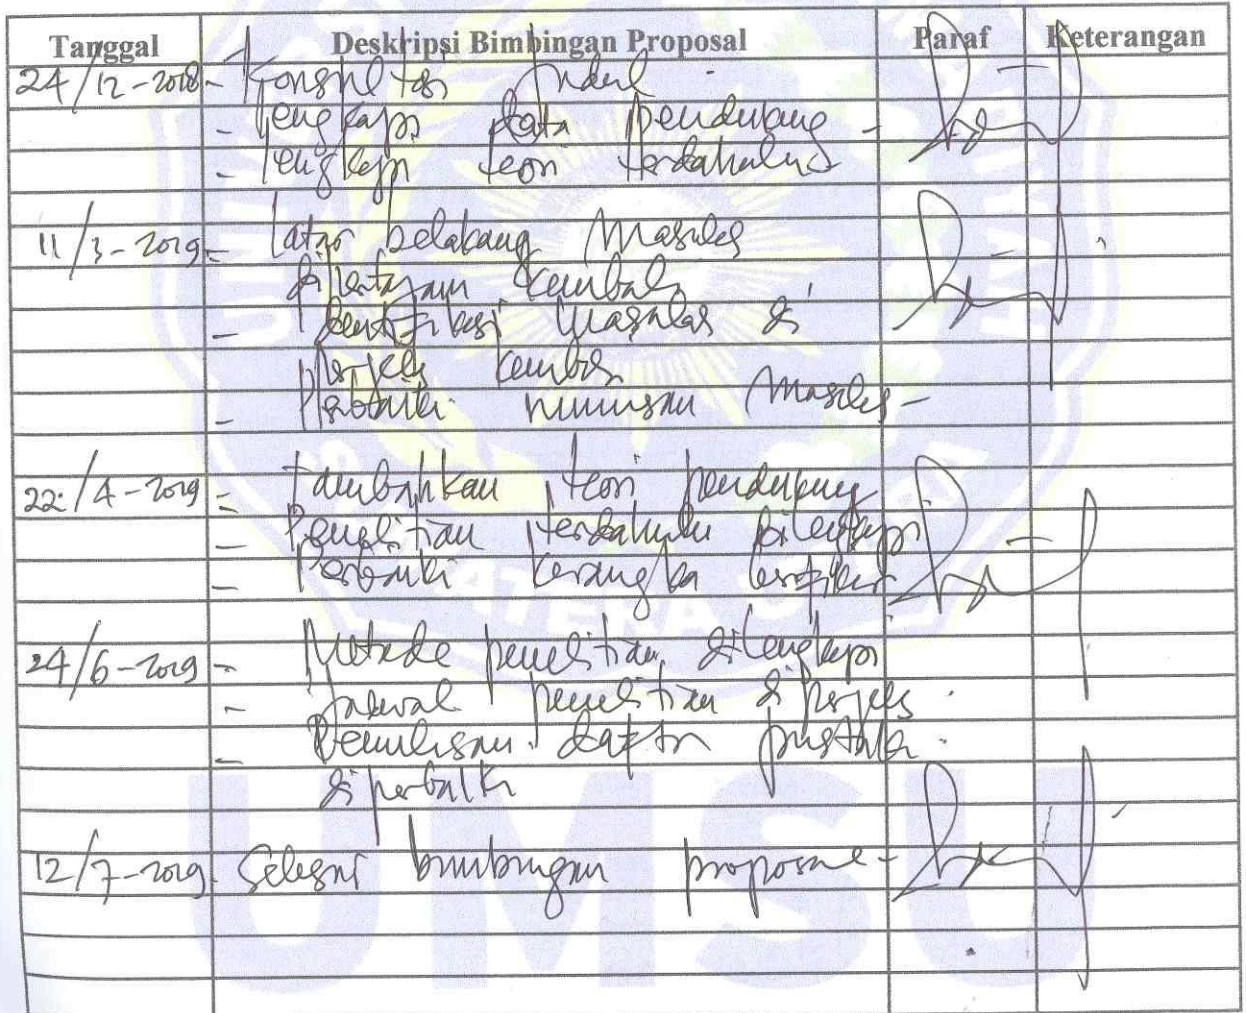 Tanggal Deskripsi Bimbingan Proposal Paraf Keterangan
24/12-2018 - Konsultasi Judul
- lengkapi data pendukung -
- lengkapi teori terdahulu
11/3-2019 - latar belakang Masalah
kembali
- Identifikasi Masalah di
perjelas kembali
- Perbaiki rumusan Masalah -
22/4-2019 - tambahkan teori pendukung
- Penelitian terdahulu dilengkapi
- Perbaiki kerangka berfikir
24/6-2019 - Metode penelitian dilengkapi
- Jadwal penelitian diperjelas
- Penulisan daftar pustaka
diperbaiki
12/7-2019 Selesai bimbingan proposal -
UMSU